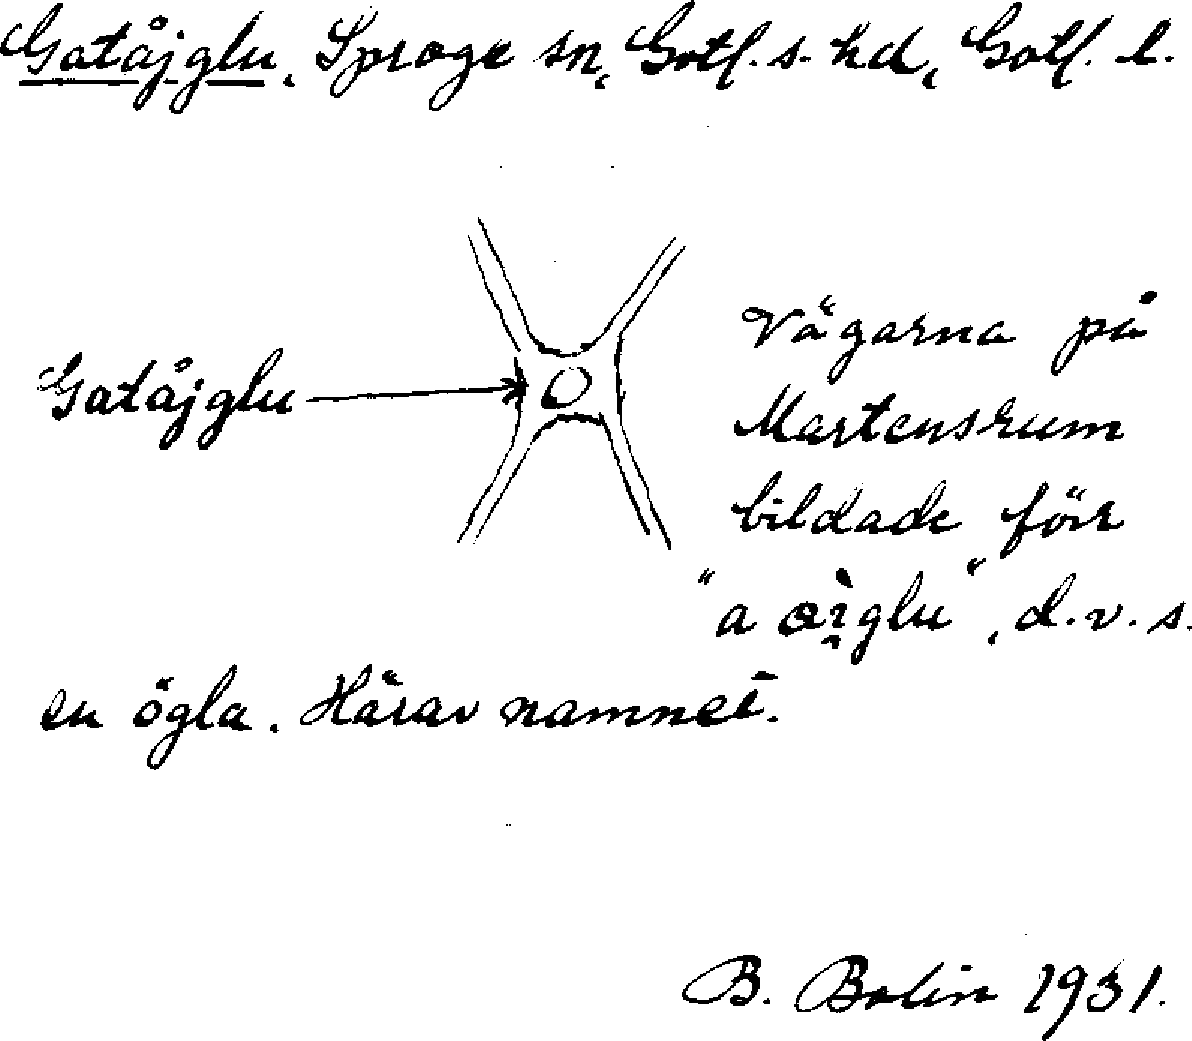 Gatåjglu, Sproge sn, Gotl. s. hd, Gotl. l.
Gatåjglu
Vägarna på
Martensrum
bildade förr
"a glu", d.v.s.
en ögla. Härav namnet.
B. Bolin 1931.